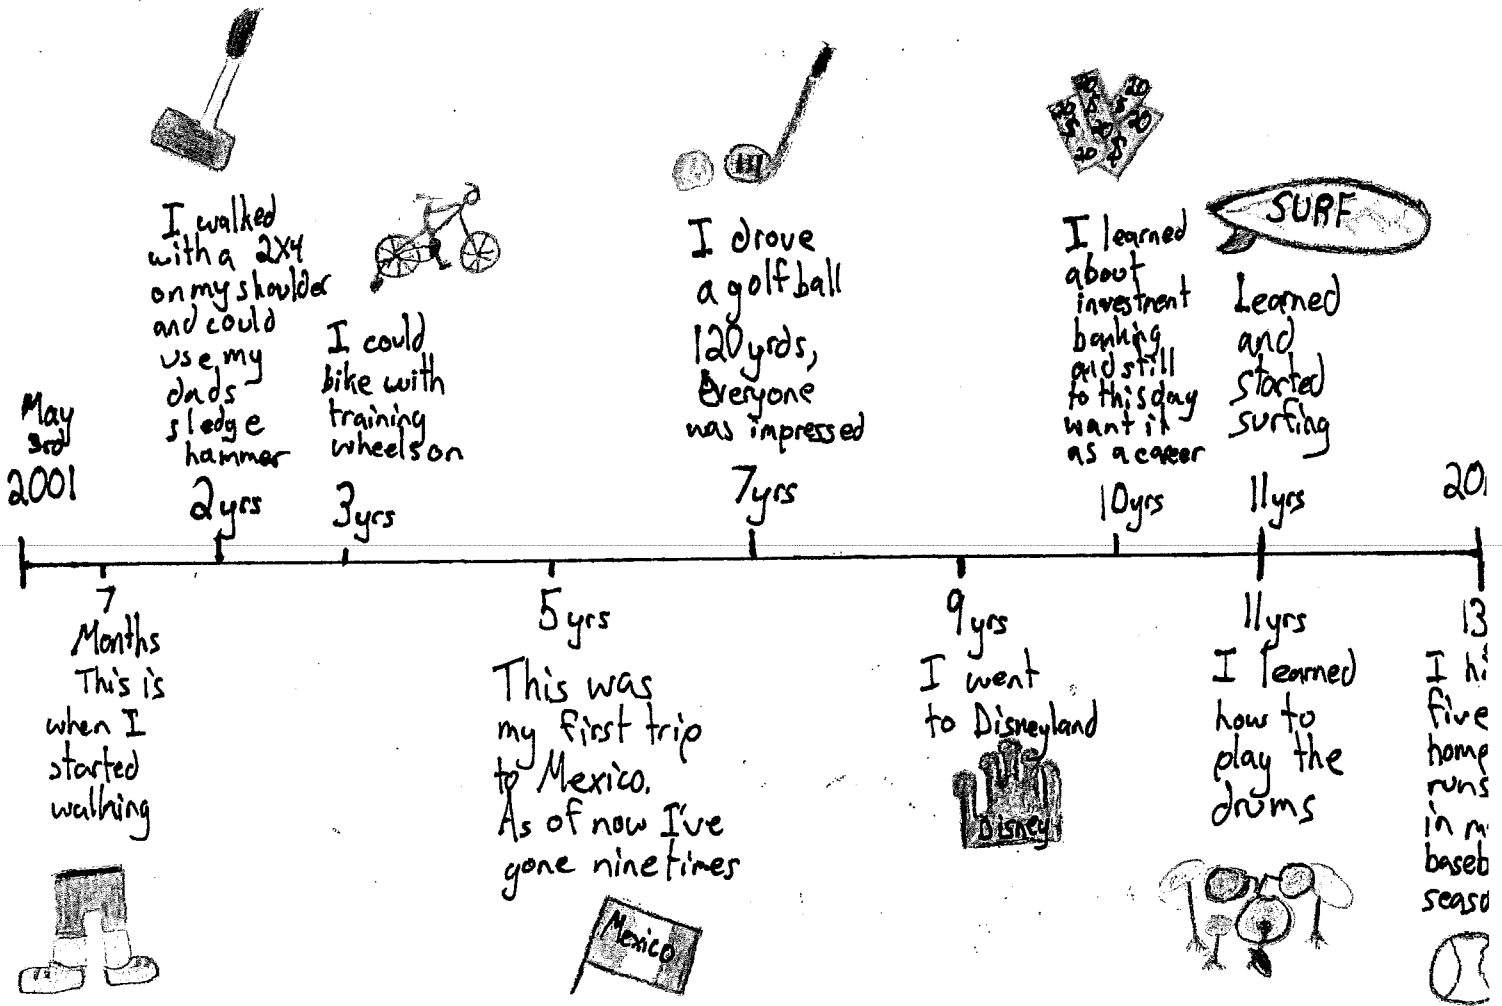 May
3rd
2001
I walked
with a 2X4
on my shoulder
and could
use my
dads
sledge
hammer
2yrs
I could
bike with
training
wheels on
3yrs
I drove
a golf ball
120 yrds,
Everyone
was impressed
7yrs
20 20
20 $ $ 20
$ 20
20 $
I learned
about
investment
banking
and still
to this day
want it
as a career
10yrs
SURF
Learned
and
started
surfing
11yrs
20
7
Months
This is
when I
started
walking
5yrs
This was
my first trip
to Mexico.
As of now I've
gone nine times
Mexico
9yrs
I went
to Disneyland
Disney
11yrs
I learned
how to
play the
drums
13
I hi
five
home
runs
in m
baseb
seaso